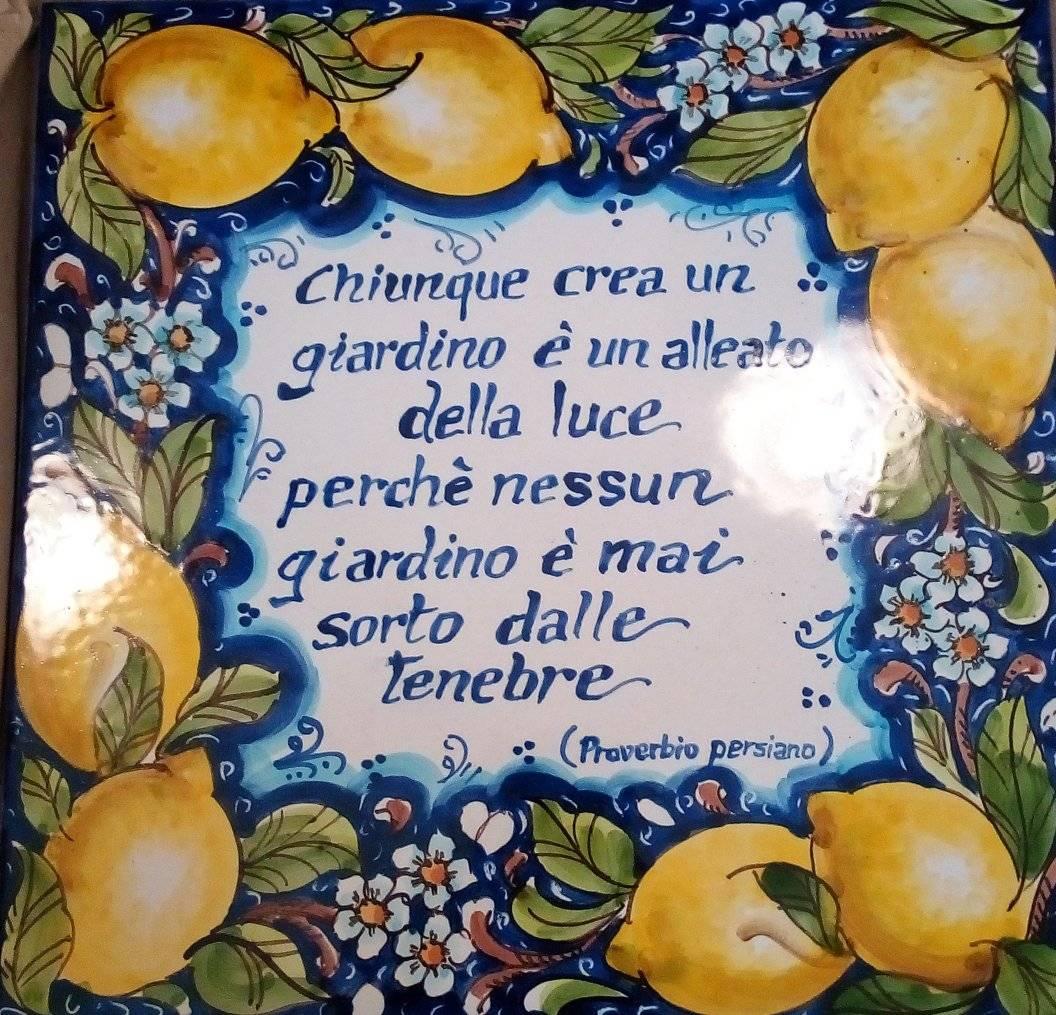 Chiunque crea un
giardino è un alleato
della luce
perchè nessun
giardino è mai
sorto dalle
tenebre
(Proverbio persiano)